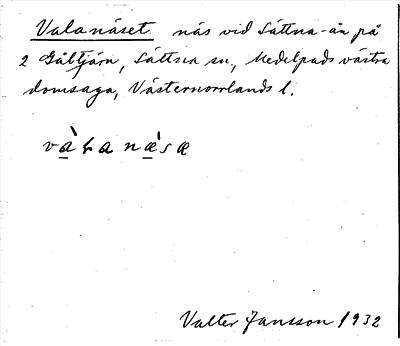 Valanäset näs vid Sättna-ån på
2 Gåltjärn, Sättna sn., Medelpads västra
domsaga, Västernorrlands l.
Valter Jansson 1932